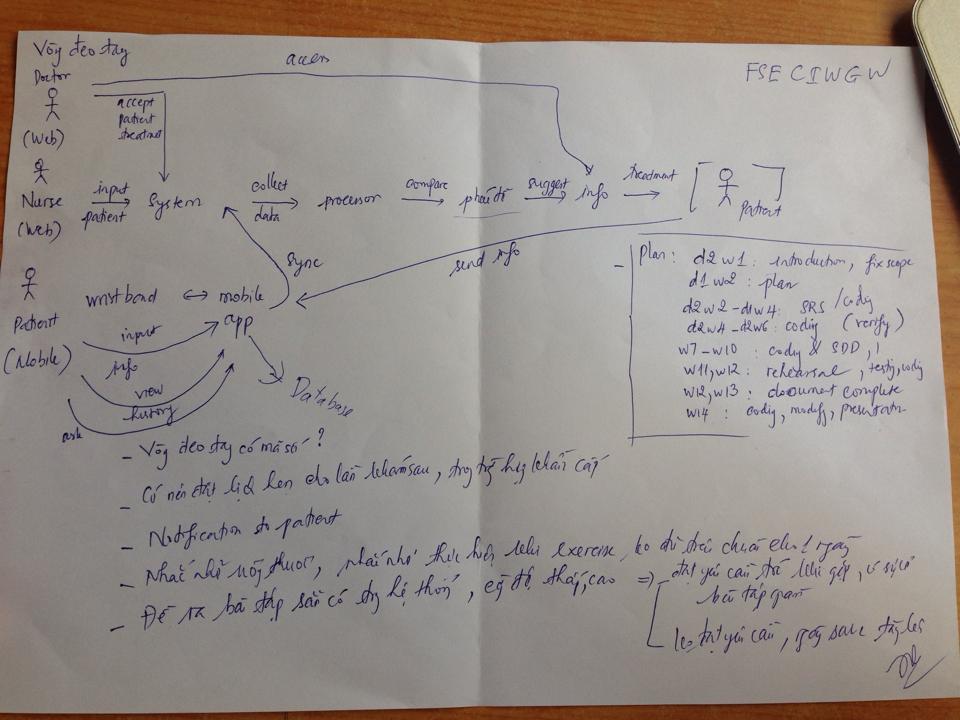 Vòng đeo tay
FSE CIWGW
Doctor
access
(Web)
accept
patient
treatment
Nurse
(Web)
input
patient
System
collect
data
processor
compare
phác đồ
suggest
info
treatment
Patient
sync
send info
Patient
(Mobile)
wristband
mobile
app
input
info
view
history
ask
Database
- Plan: d2w1: introduction, fix scope
d1w2: plan
d2w2-d1w4: SRS / codig
d2w4-d2w6: codig (verify)
w7-w10: codig & SDD,
w11, w12: rehearsal, testig, codig
w12, w13: document complete
w14: codig, modify, presentation
- Vòng đeo tay có mã số?
- Có nên đặt lịch hẹn cho lần khám sau, trog trường hợp khẩn cấp
- Notification to patient
- Nhắc nhở uống thuốc, nhắc nhở thực hiện exercise,
- Đề ra bài tập sẵn có trg hệ thống, cg độ thấp, cao =>
bài tập
ko đạt yêu cầu, ngày sau